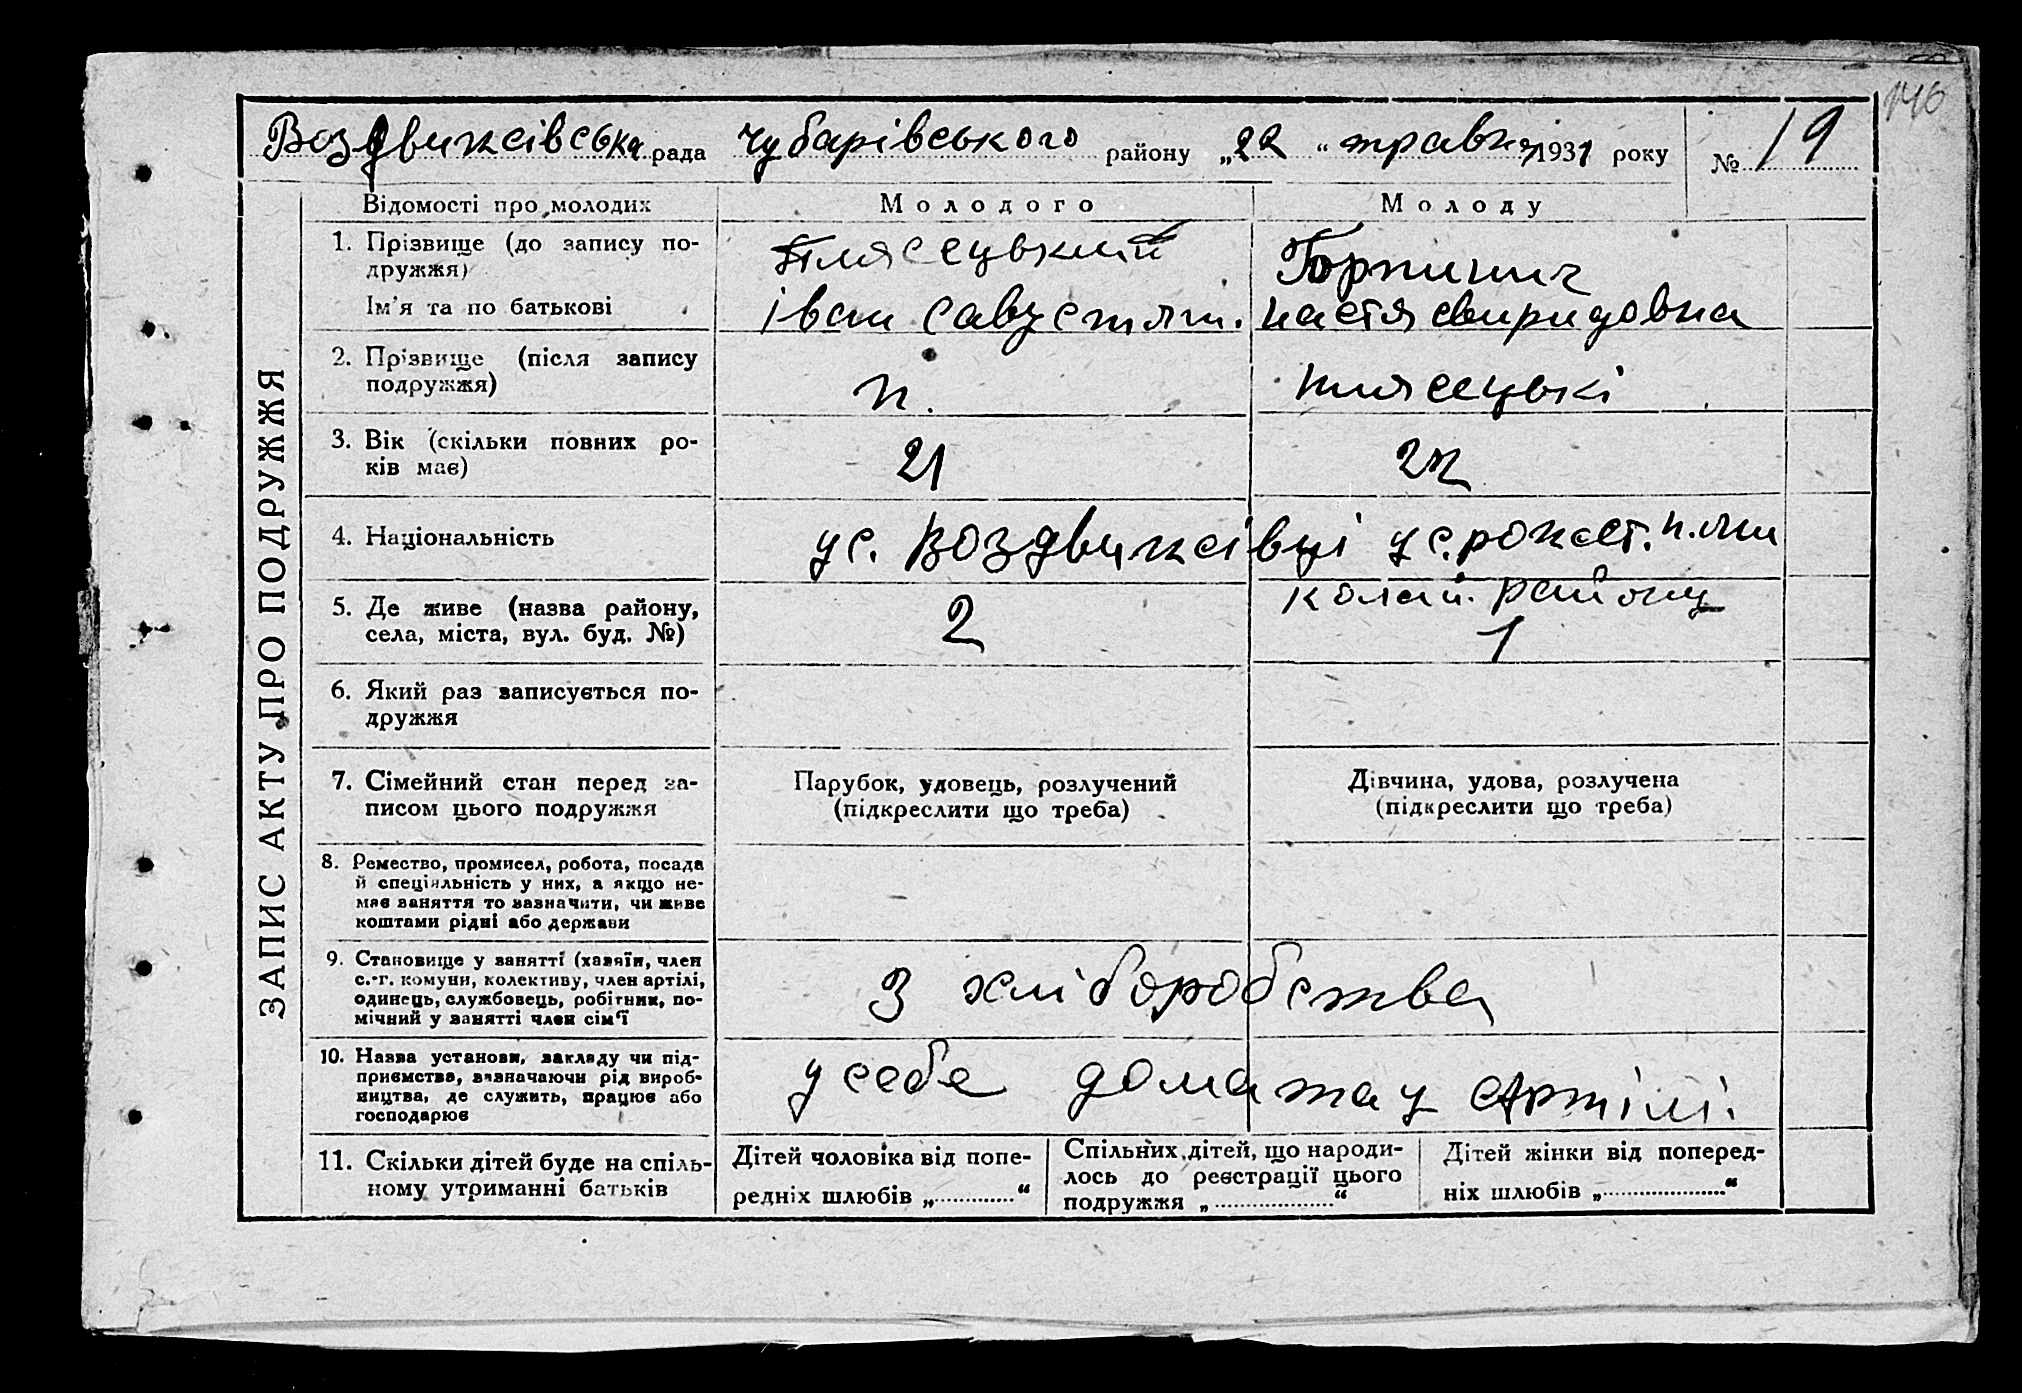 146
Воздвижсівська рада Чубарівського району „22“ травня 1931 року № 19
ЗАПИС АКТУ ПРО ПОДРУЖЖЯ
Відомості про молодих Молодого Молоду
1. Прізвище (до запису по-
дружжя)
Плясецький Горпинич
Ім'я та по батькові
іван савустям. настя свиридовна
2. Прізвище (після запису
подружжя)
п. плясецькі
3. Вік (скільки повних ро-
ків має)
21 22
4. Національність
ус. Воздвижсівці ус. рожест.
калай. району
5. Де живе (назва району,
села, міста, вул. буд. №)
2 1
6. Який раз записується по-
дружжя
7. Сімейний стан перед за-
писом цього подружжя
Парубок, удовець, розлучений
(підкреслити що треба)
Дівчина, удова, розлучена
(підкреслити що треба)
8. Ремество, промисел, робота, посада
й спеціяльність у них, а якщо не-
має заняття то зазначити, чи живе
коштами рідні або держави
9. Становище у занятті (хазяїн, член
с.-г. комуни, колективу, член артілі,
одинець, службовець, робітник, по-
мічний у занятті член сім'ї
З хліборобства
10. Назва установи, закладу чи під-
приємства, зазначаючи рід вироб-
ництва, де служить, працює або
господарює
у себе дома та у Артілі.
11. Скільки дітей буде на спіль-
ному утриманні батьків
Дітей чоловіка від попе-
редніх шлюбів „.............“
Спільних дітей, що народи-
лось до реєстрації цього
подружжя „...................“
Дітей жінки від поперед-
ніх шлюбів „...................“